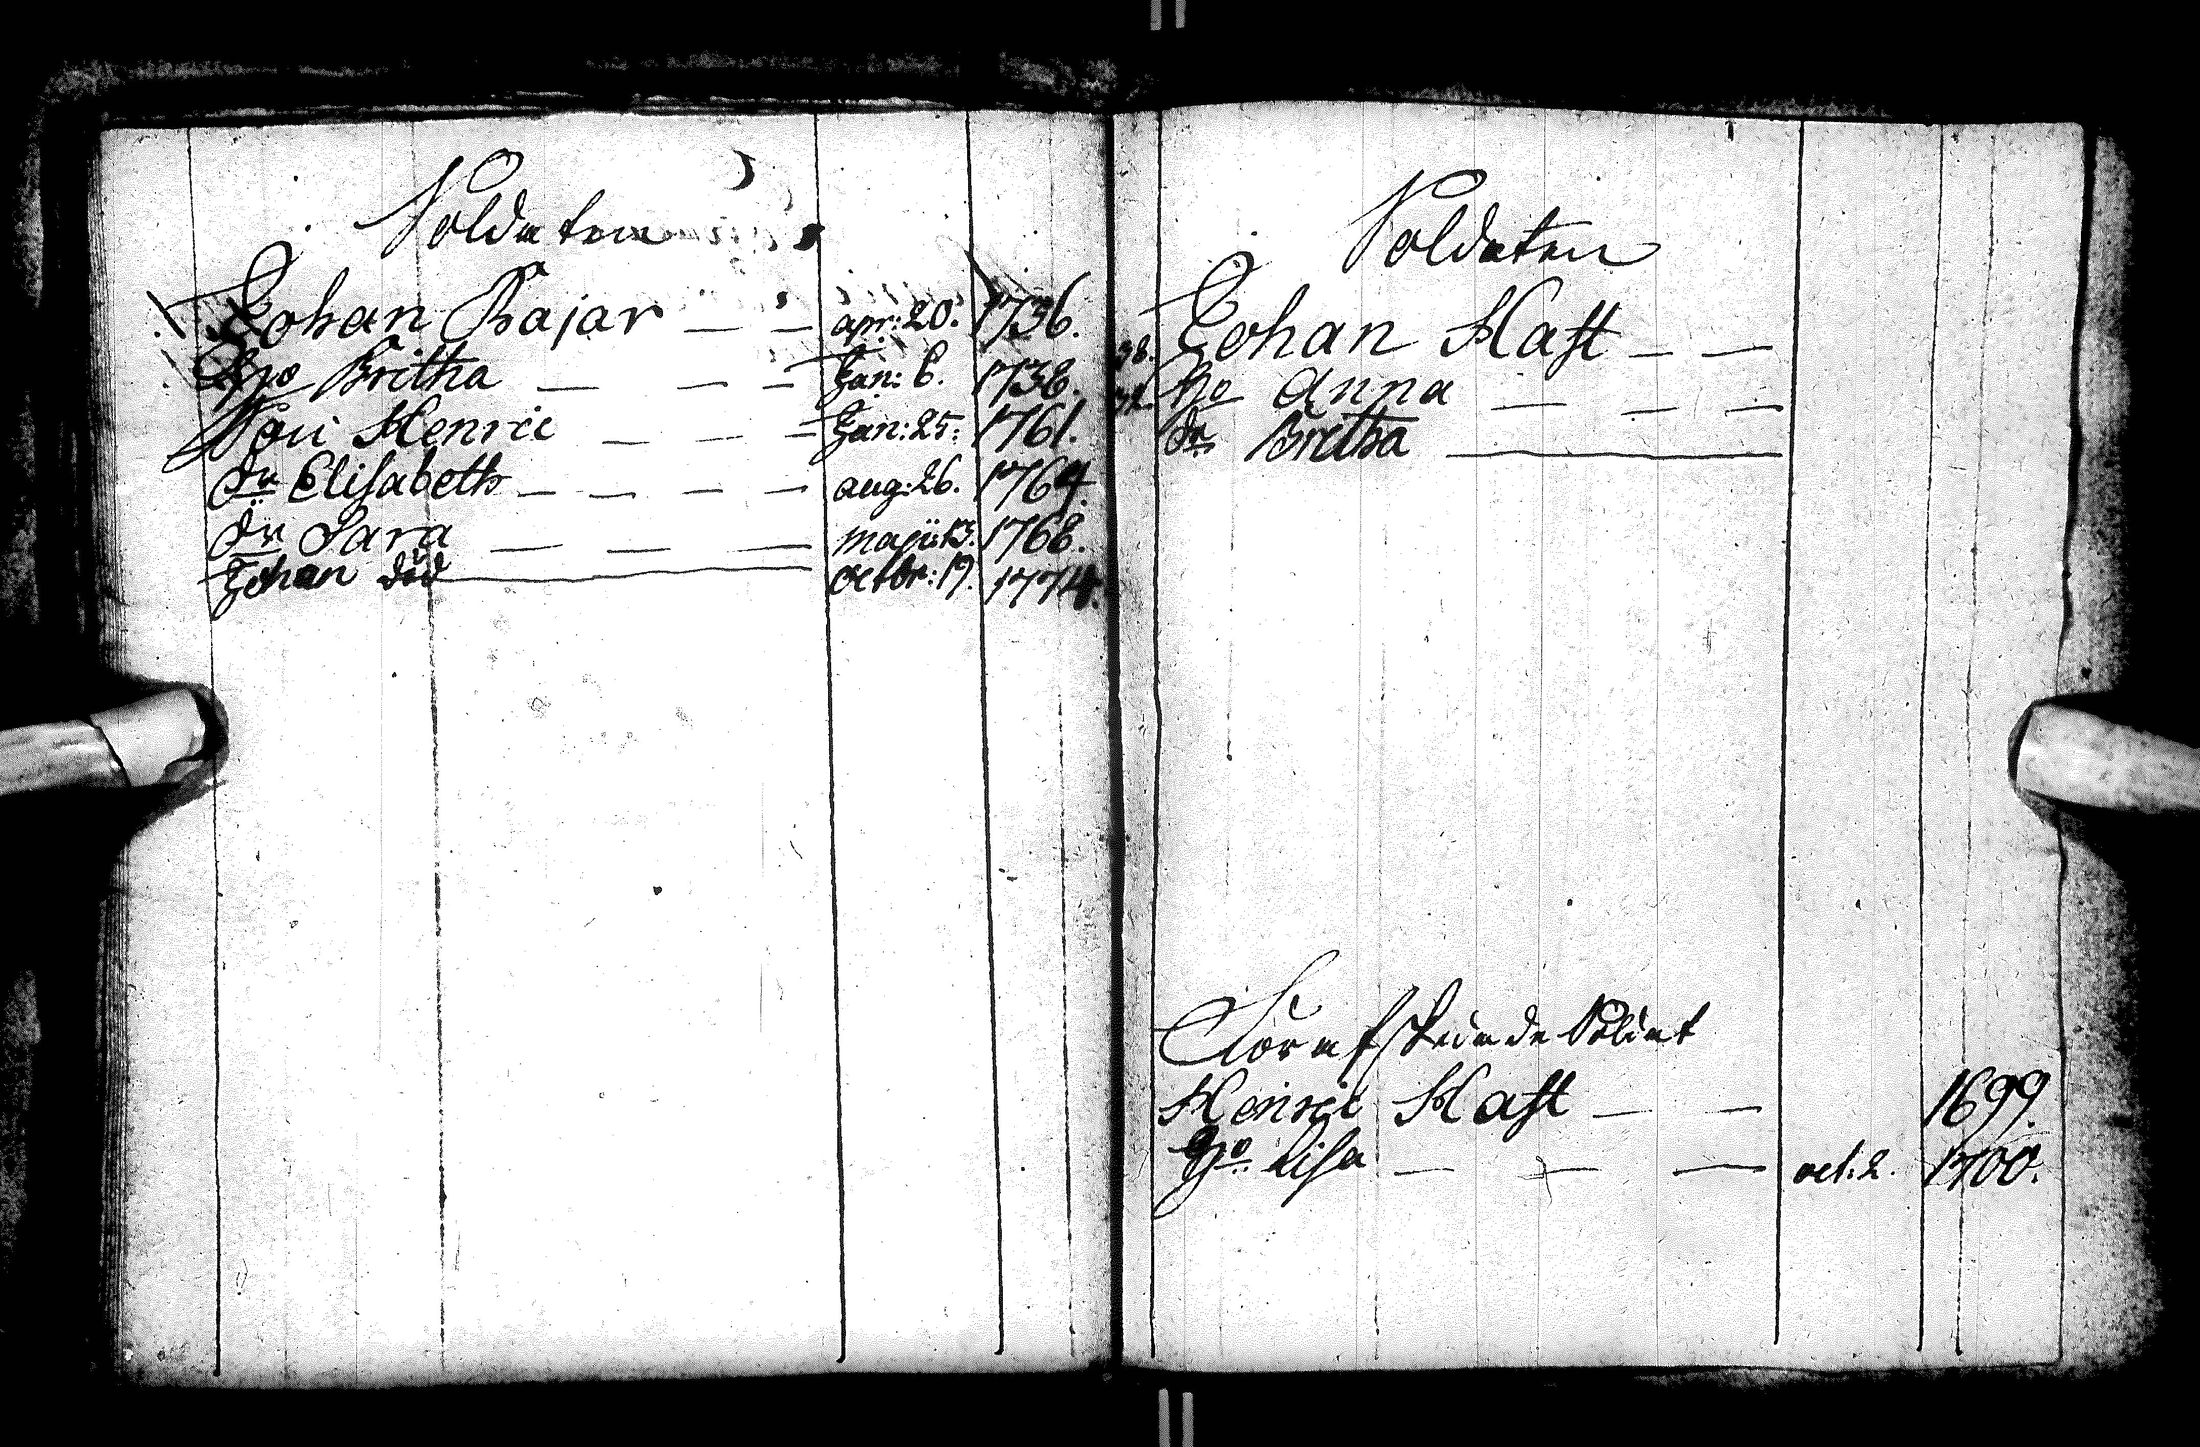 Soldaten
Johan Bajar — — apr: 20. 1736.
H:o Britha — — — Jan: 6. 1738.
Son Henric — — — Jan: 25. 1761.
dr Elisabeth — — — — aug: 26. 1764.
dr Sara — — — maji: 13. 1768.
Johan död — octbr: 19. 1774.
Soldaten
38. Johan Hast — —
H:o Anna — — —
dr Britha —
För afskedade Soldat
Henric Hast — — 1699
H:o Lisa — — — oct. 2. 1700.